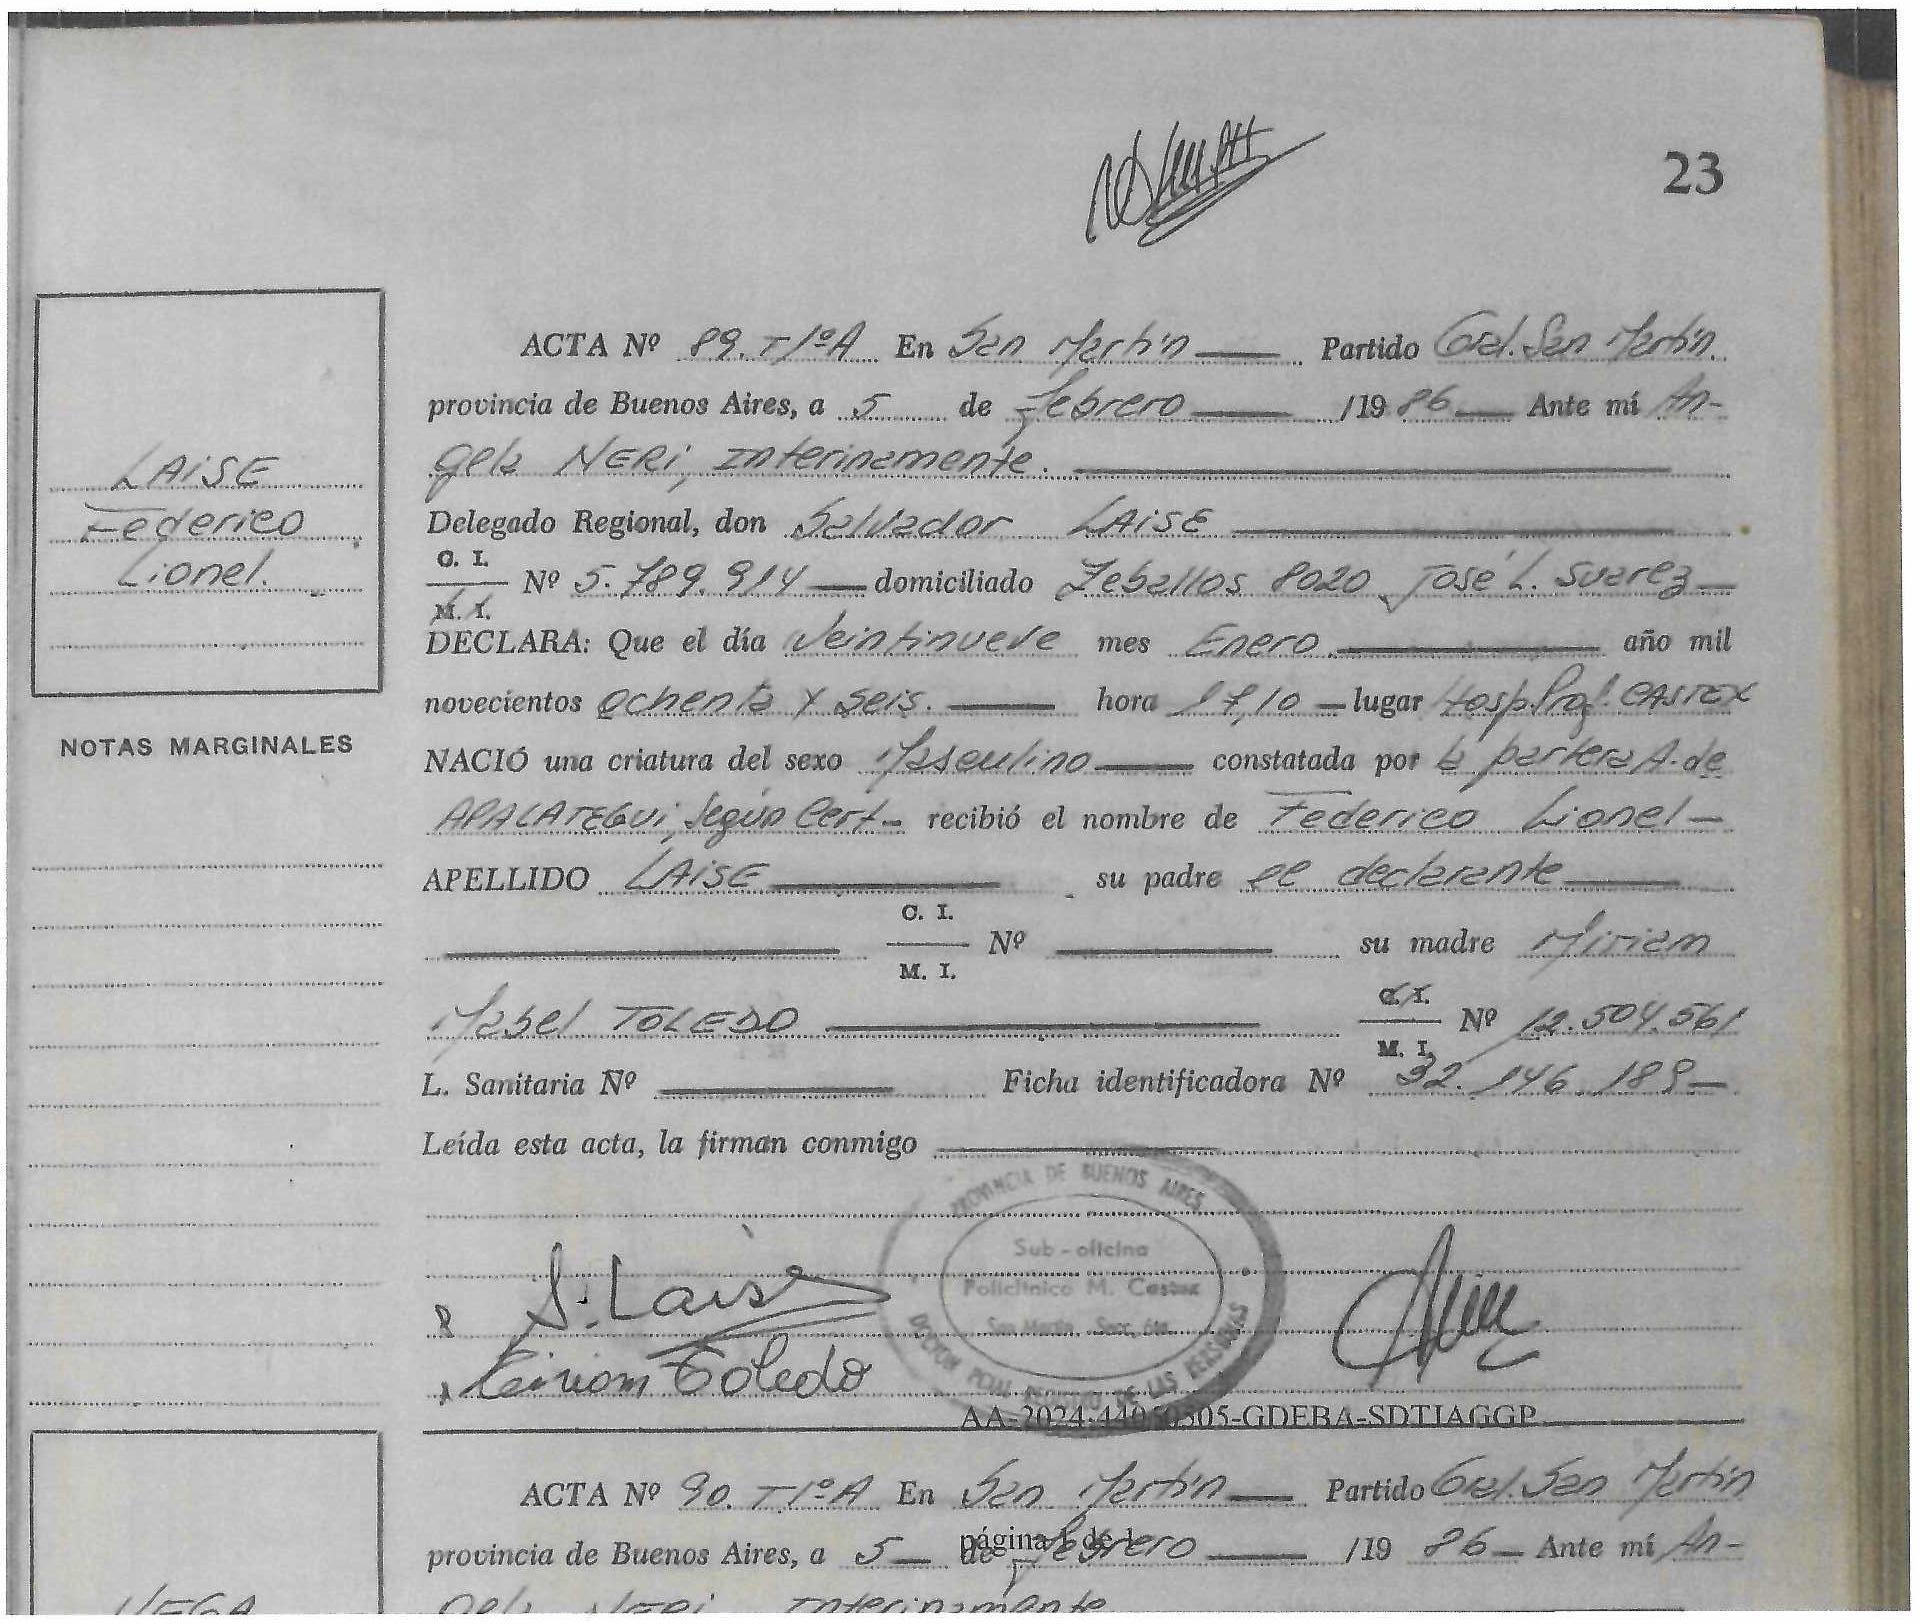 23
ACTA Nº 89. T1ºA En San Martín Partido Gral. San Martín
provincia de Buenos Aires, a 5 de febrero /19 86 Ante mí An-
gela NERI, Interinamente.
LAISE
Federico
Lionel.
Delegado Regional, don Salvador LAISE
C. I.
Nº 5.789.914 domiciliado Zeballos 8020, José L. Suarez
M. I.
DECLARA: Que el día Veintinueve mes Enero año mil
novecientos ochenta y seis. hora 17,10 lugar Hosp. Prof. CASTEX
NOTAS MARGINALES
NACIÓ una criatura del sexo Masculino constatada por la partera A. de
APALATEGUI, según Cert- recibió el nombre de Federico Lionel
APELLIDO LAISE su padre el declarante
C. I.
Nº su madre Miriam
M. I.
Mabel TOLEDO C. I. Nº 12.504.561
M. I.
L. Sanitaria Nº Ficha identificadora Nº 32.146.189
Leída esta acta, la firman conmigo
PROVINCIA DE BUENOS AIRES
Sub-oficina
Policlínico M. Castex
San Martín Secc. 6ta.
DE LAS PERSONAS
S. Laise
Miriam Toledo
AA-2024-44050505-GDEBA-SDTIAGGP
ACTA Nº 90. T1ºA En San Martín Partido Gral. San Martín
provincia de Buenos Aires, a 5 de febrero /19 86 Ante mí An-
página 1 de 1
VEGA
gela NERI, Interinamente